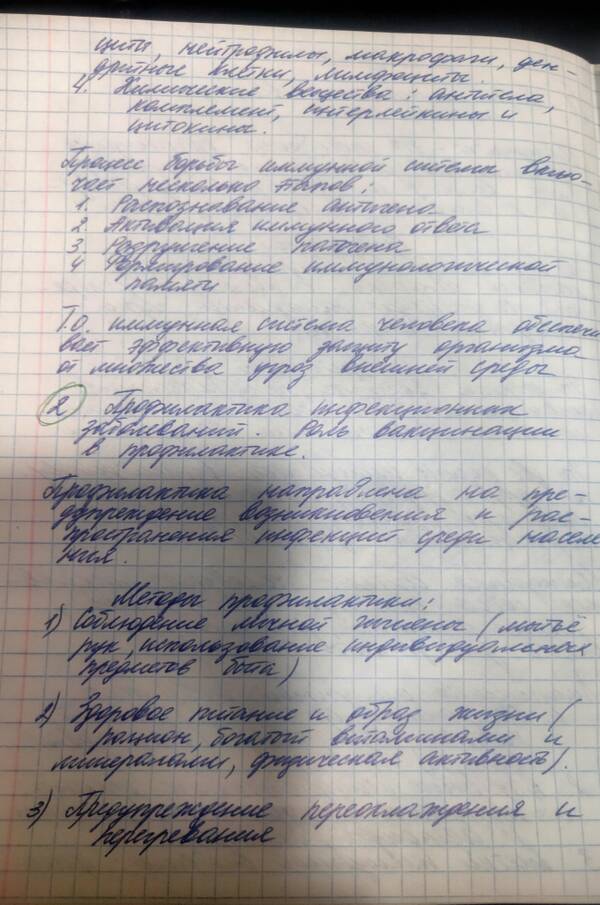 циты, нейтрофилы, макрофаги, ден-
дритные клетки, лимфоциты.
4. Химические вещества: антитела,
комплемент, интерлейкины и
цитокины.
Процесс борьбы иммунной системы вклю-
чает несколько этапов:
1. Распознавание антигена
2. Активация иммунного ответа
3 Разрушение патогена
4 Формирование иммунологической
памяти
Т.о. иммунная система человека обеспечи
вает эффективную защиту организма
от множества угроз внешней среды
2 Профилактика инфекционных
заболеваний. Роль вакцинации
в профилактике.
Профилактика направлена на пре-
дупреждение возникновения и рас-
пространения инфекций среди населе
ния.
Методы профилактики:
1) Соблюдение личной гигиены (мытьё
рук, использование индивидуальных
предметов быта)
2) Здоровое питание и образ жизни (
рацион, богатый витаминами и
минералами, физическая активность).
3) Предупреждение переохлаждения и
перегревания